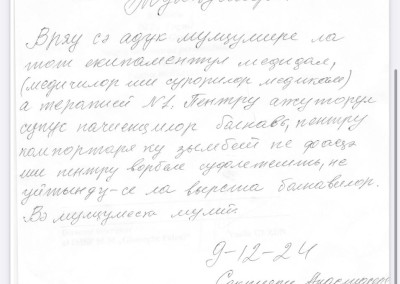 Вряу сэ адук мулцумире ла
тот екипаментул медикал,
(медичилор ши сурорилор медикале)
а терапией №1. Пентру ажуторул
супус пачиенцилор болнавь, пентру
компортаре ку зымбет пе фацэ
ши пентру ворбеле суфлетешть, не
уйтынду-се ла вырста болнавилор.
Вэ мулцумеск мулт
9-12-24